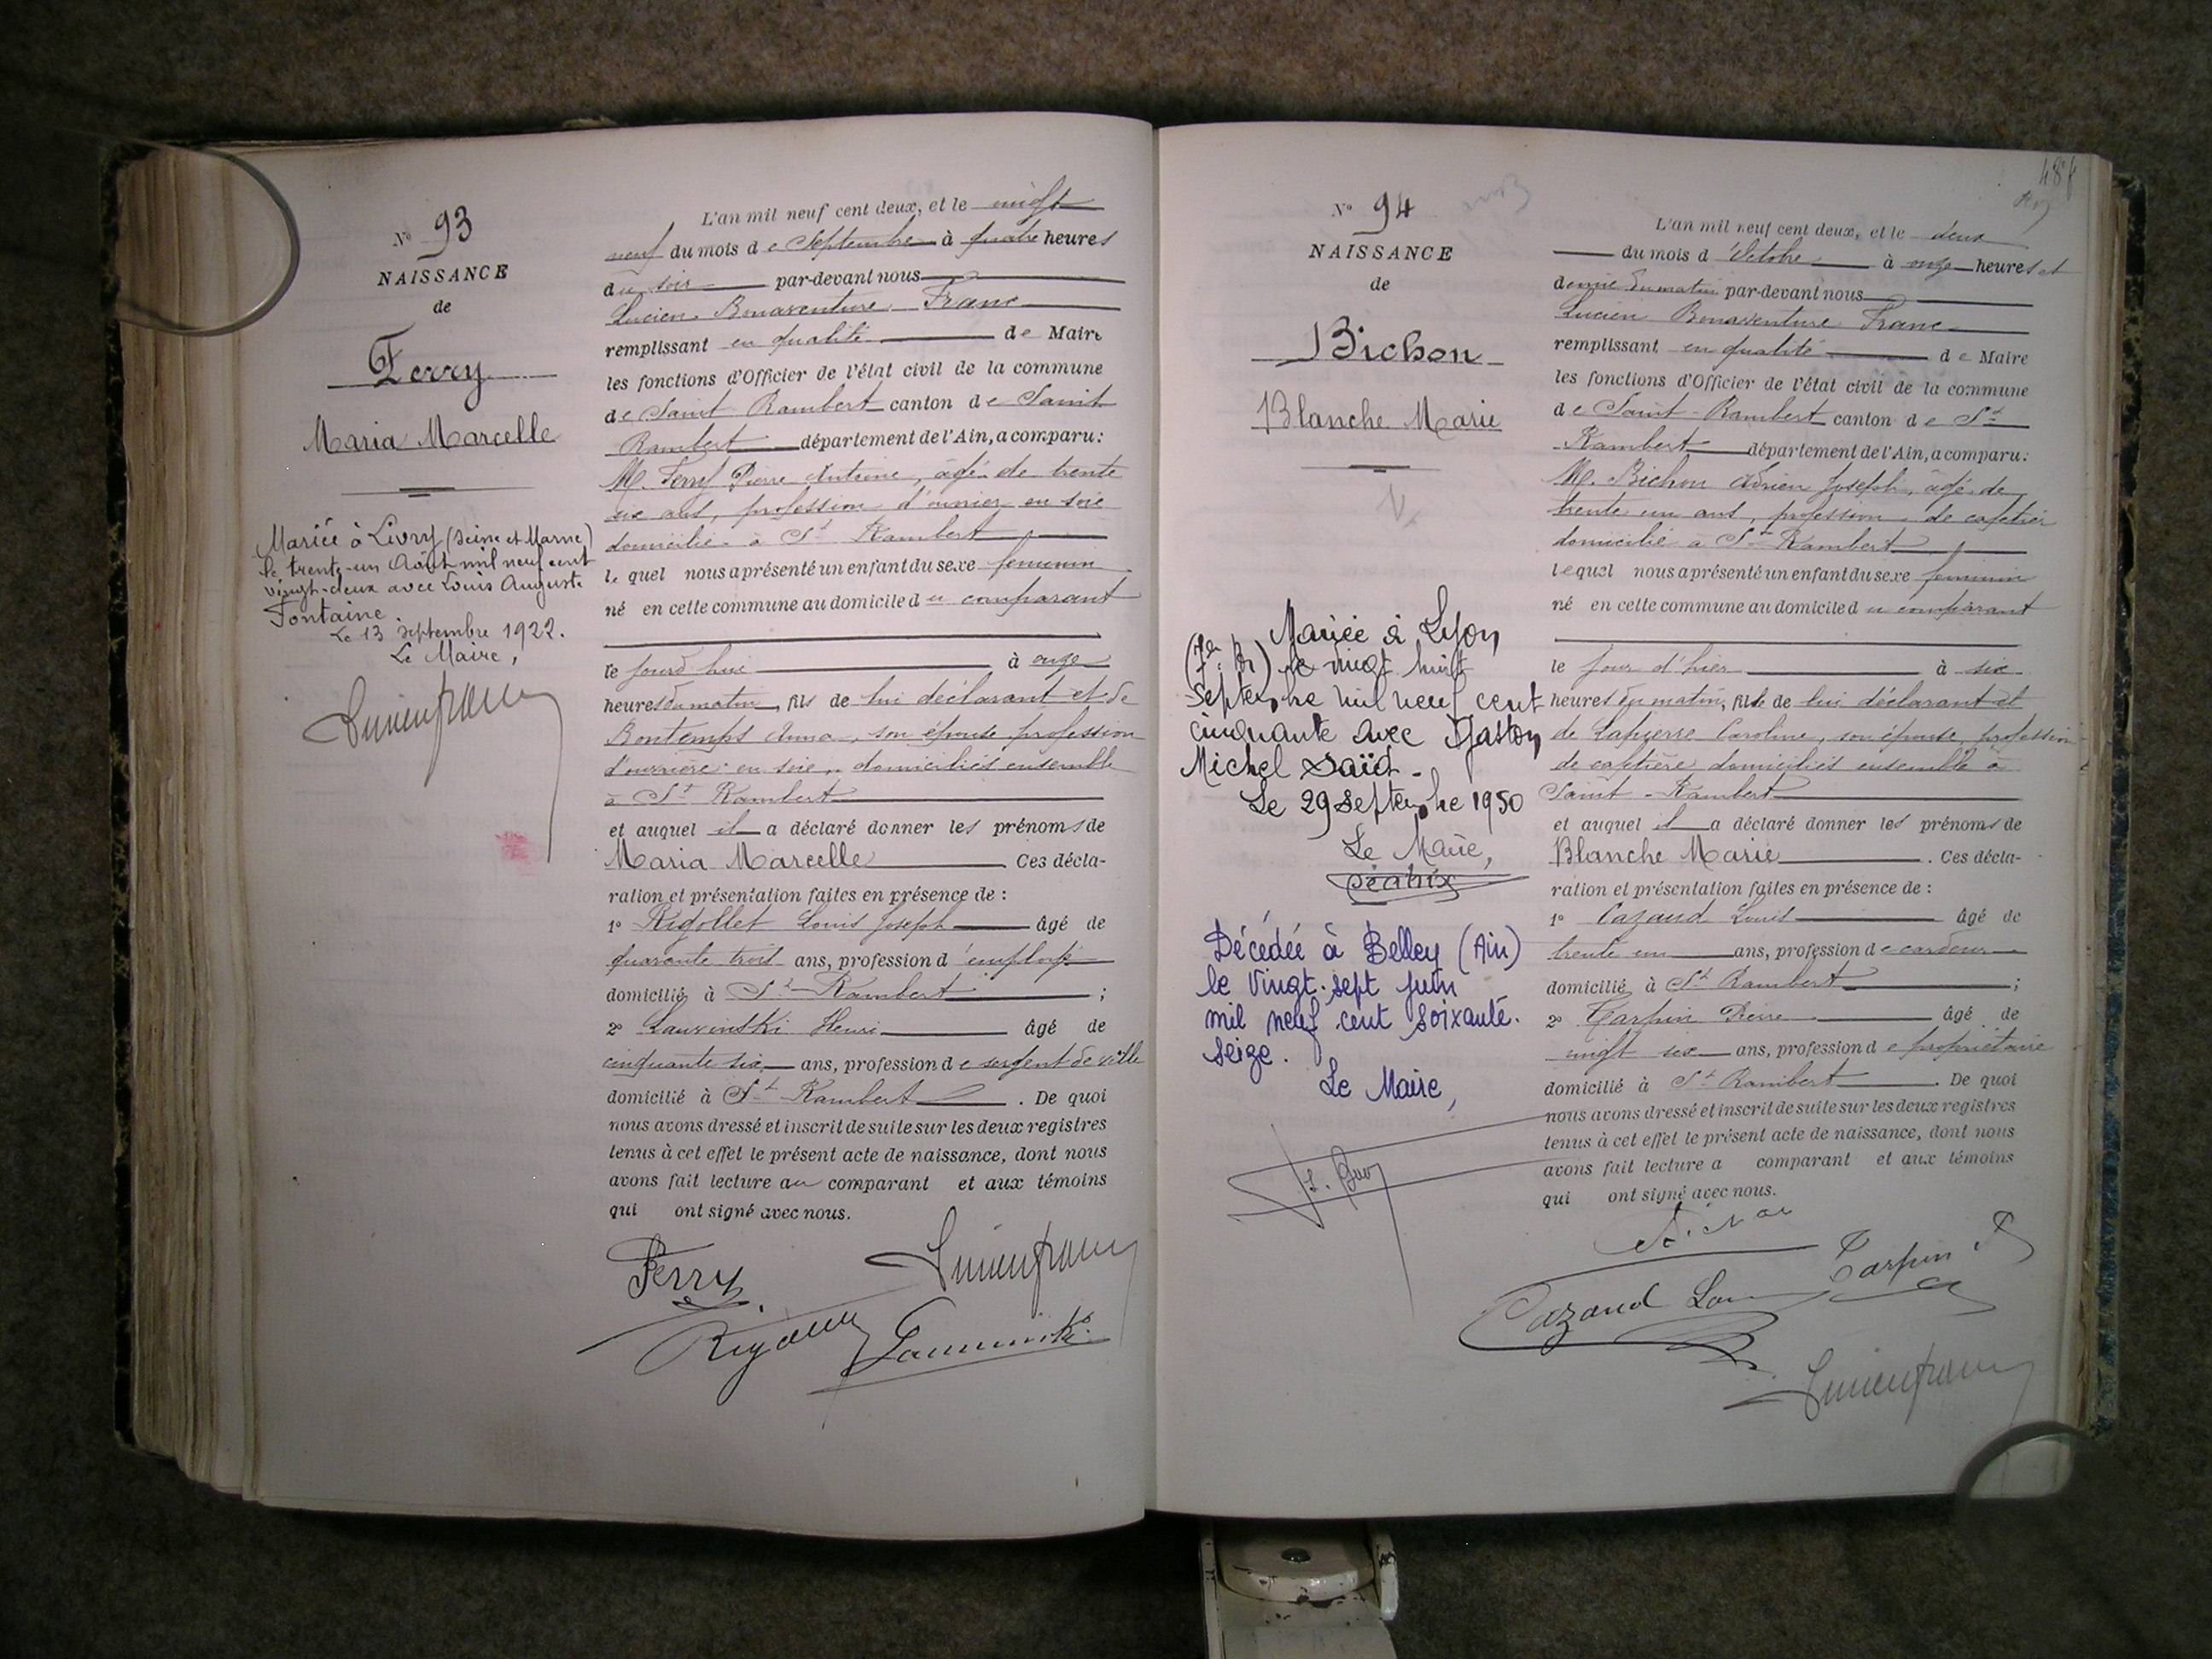 No 93
NAISSANCE
de
Ferry
Maria Marcelle
Mariée à Livry (Seine et Marne)
le trente-un Août mil neuf cent
vingt-deux avec Louis Auguste
Fontaine.
Le 13 Septembre 1922.
Le Maire,
L'an mil neuf cent deux, et le vingt
neuf du mois de Septembre à quatre heures
du soir par-devant nous
Lucien Bonaventure Franc
remplissant en qualité de Maire
les fonctions d'Officier de l'état civil de la commune
de Saint Rambert canton de Saint
Rambert département de l'Ain, a comparu:
M. Ferry Pierre Antoine, âgé de trente
six ans, profession d'ouvrier en soie
domicilié à St Rambert
lequel nous a présenté un enfant du sexe féminin
né en cette commune au domicile du comparant
le jourd'hui à onze
heures du matin, fils de lui déclarant et de
Bontemps Anna, son épouse profession
d'ouvrière en soie, domiciliés ensemble
à St Rambert
et auquel il a déclaré donner les prénoms de
Maria Marcelle Ces décla-
ration et présentation faites en présence de :
1o Rigollet Louis Joseph âgé de
quarante trois ans, profession d'employé
domicilié à St Rambert ;
2o Henri âgé de
cinquante six ans, profession de sergent de ville
domicilié à St Rambert . De quoi
nous avons dressé et inscrit de suite sur les deux registres
tenus à cet effet le présent acte de naissance, dont nous
avons fait lecture au comparant et aux témoins
qui ont signé avec nous.
Ferry
No 94
NAISSANCE
de
Bichon
Blanche Marie
Mariée à Lyon
le vingt huit
Septembre mil neuf cent
cinquante avec Gaston
Michel Saïd.
Le 29 Septembre 1950
Le Maire,
Décédée à Belley (Ain)
le Vingt-sept Juin
mil neuf cent soixante-
seize.
Le Maire,
L'an mil neuf cent deux, et le deux
du mois d'Octobre à onze heures et
demie du matin par-devant nous
Lucien Bonaventure Franc
remplissant en qualité de Maire
les fonctions d'Officier de l'état civil de la commune
de Saint-Rambert canton de St
Rambert département de l'Ain, a comparu:
M. Bichon Adrien Joseph, âgé de
trente un ans, profession de cafetier
domicilié à St Rambert
lequel nous a présenté un enfant du sexe féminin
né en cette commune au domicile du comparant
le jour d'hier à six
heures du matin, fille de lui déclarant et
de Lapierre Caroline, son épouse, profession
de cafetière domiciliés ensemble à
Saint-Rambert
et auquel il a déclaré donner les prénoms de
Blanche Marie . Ces décla-
ration et présentation faites en présence de :
1o Cazaud Louis âgé de
trente un ans, profession de cardeur
domicilié à St Rambert ;
2o Tarpin Pierre âgé de
vingt six ans, profession de propriétaire
domicilié à St Rambert . De quoi
nous avons dressé et inscrit de suite sur les deux registres
tenus à cet effet le présent acte de naissance, dont nous
avons fait lecture a comparant et aux témoins
qui ont signé avec nous.
Tarpin P
Cazaud